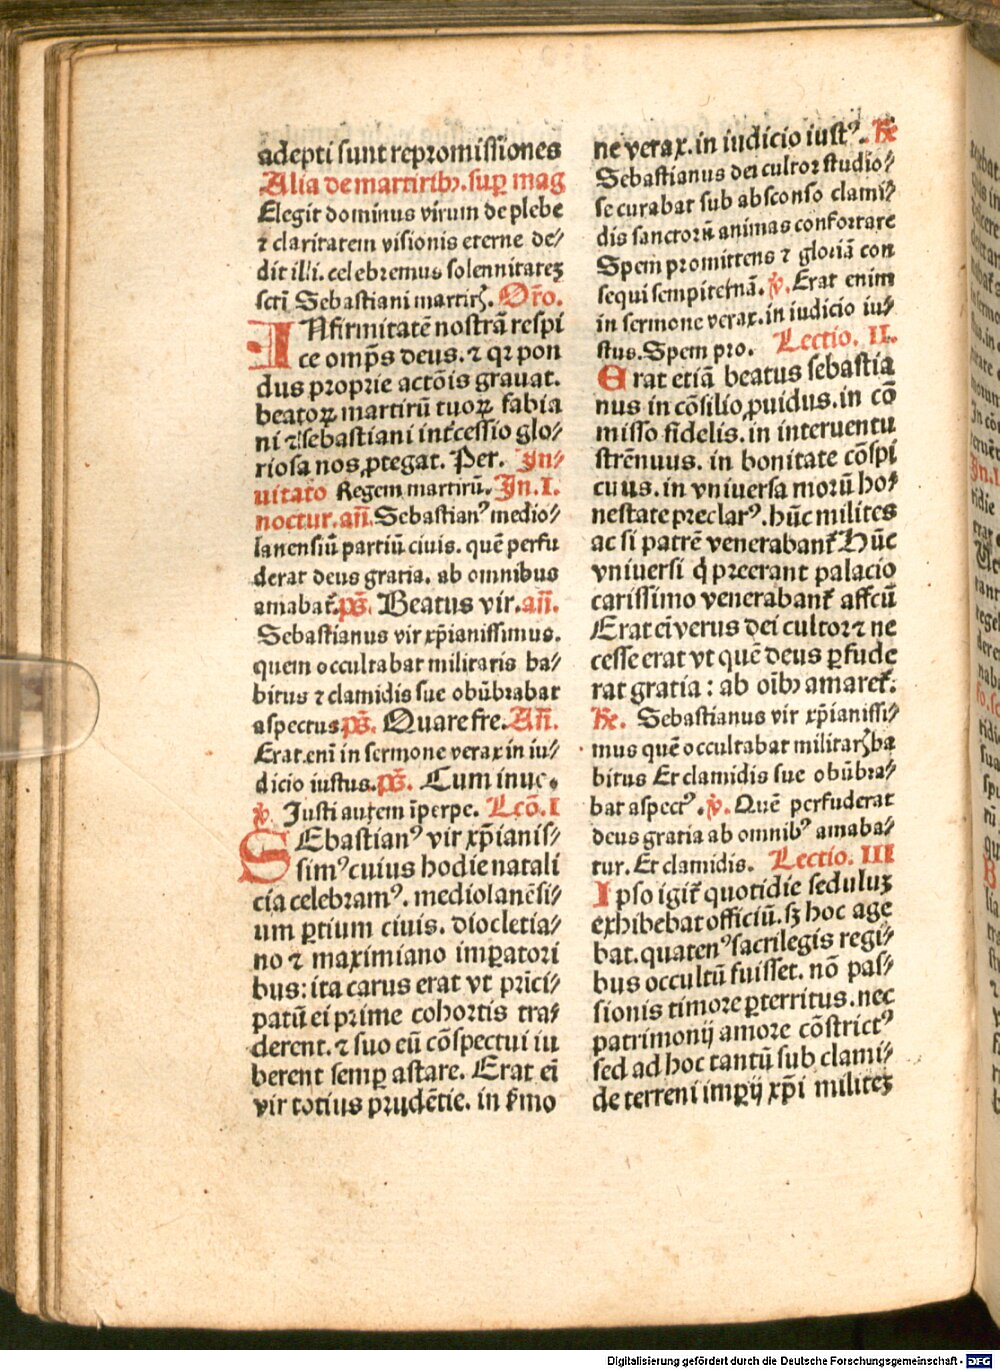 adepti sunt repromissiones
Alia de martiribꝫ. suꝑ mag
Elegit dominus virum de plebe
⁊ claritatem visionis eterne de⸗
dit illi. celebremus solennitateꝫ
scti Sebastiani martirꝭ. Orõ.
INfirmitatē nostrā respi
ce omp̄s deus. ⁊ qꝛ pon
dus proprie actōis grauat.
beatoꝝ martirū tuoꝝ fabia
ni ⁊ sebastiani int̄cessio glo⸗
riosa nos ꝓtegat. Per. In⸗
uitato Regem martirū. In. I.
noctur. añ. Sebastianꝰ medio⸗
lanensiū partiū ciuis. quē perfu
derat deus gratia. ab omnibus
amabat᷑. ps̄. Beatus vir. añ.
Sebastianus vir xp̄ianissimus.
quem occultabat militaris ha⸗
bitus ⁊ clamidis sue obūbrabat
aspectus ps̄. Quare fre. Añ.
Erat enī in sermone verax in iu⸗
dicio iustus. ps̄. Cum inuc.
ꝟ. Justi autem īperpe. Lcō. I
SEbastianꝰ vir xp̄ianis⸗
simꝰ cuius hodie natali
cia celebramꝰ. mediolanēsi⸗
um ꝑtium ciuis. diocletia⸗
no ⁊ maximiano imꝑatori
bus: ita carus erat vt prīci⸗
patū ei prime cohortis tra⸗
derent. ⁊ suo eū cōspectui iu
berent semꝑ astare. Erat eī
vir totius prudētie. in ẜmo
ne verax. in iudicio iustꝰ. R̄
Sebastianus dei cultor studio⸗
se curabat sub absconso clami⸗
dis sanctorū animas confortare
Spem promittens ⁊ gloriā con
sequi sempiternā. ꝟ. Erat enim
in sermone verax. in iudicio iu⸗
stus. Spem pro. Lectio. II.
Erat etiā beatus sebastia
nus in cōsilio ꝓuidus. in cō
misso fidelis. in interuentu
strēnuus. in bonitate cōspi
cuus. in vniuersa morū ho⸗
nestate preclarꝰ. hūc milites
ac si patrē venerabant᷑ Hūc
vniuersi q̇ preerant palacio
carissimo venerabant᷑ affcū
Erat eī verus dei cultor ⁊ ne
cesse erat vt quē deus ꝑfude
rat gratia: ab oībꝫ amaret᷑.
R̄. Sebastianus vir xp̄ianissi⸗
mus quē occultabat militarꝭ ha
bitus Et clamidis sue obūbra⸗
bat aspectꝰ. ꝟ. Quē perfuderat
deus gratia ab omnibꝰ amaba⸗
tur. Et clamidis. Lectio. III
Ipso igit᷑ quotidie sedulux
exhibebat officiū. sꝫ hoc age
bat. quatenꝰ sacrilegis regi⸗
bus occultū fuisset. nō pas⸗
sionis timore ꝑterritus. nec
patrimonij amore cōstrictꝰ
sed ad hoc tantū sub clami⸗
de terreni imꝑij xp̄i militeꝫ
Digitalisierung gefördert durch die Deutsche Forschungsgemeinschaft - DFG